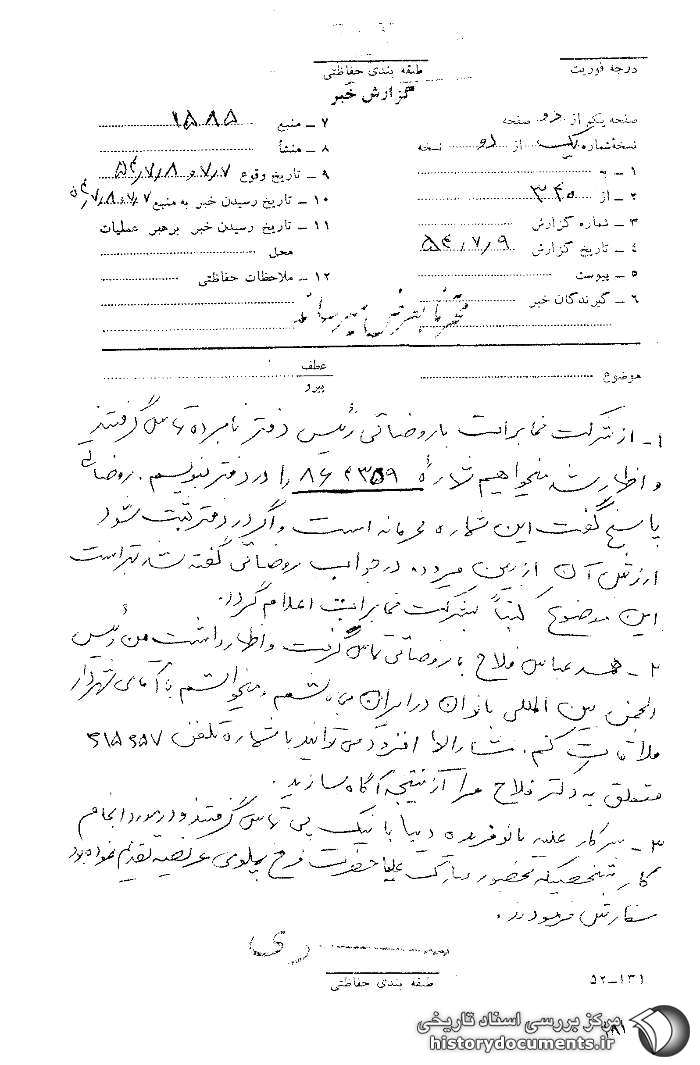 درجه فوریت
طبقه بندی حفاظتی
گزارش خبر
صفحه یکم از دو صفحه
نسخه شماره یک از دو نسخه
۱ - به
۲ - از ۳۴۵
۳ - شماره گزارش
۴ - تاریخ گزارش ۵۴٫۷٫۹
۵ - پیوست
۶ - گیرندگان خبر
۷ - منبع ۱۵۸۵
۸ - منشأ
۹ - تاریخ وقوع ۷٫۷ و ۵۴٫۷٫۸
۱۰ - تاریخ رسیدن خبر به منبع ۷٫۷ و ۵۴٫۷٫۸
۱۱ - تاریخ رسیدن خبر برهبر عملیات
محل
۱۲ - ملاحظات حفاظتی
بعرض میرساند
موضوع
عطف
پیرو
۱- از شرکت مخابرات با روضاتی رئیس دفتر نامبرده تماس گرفتند
و اظهار شد میخواهیم شماره ۸۶۲۳۵۹ را در دفتر بنویسیم. روضاتی
پاسخ گفت این شماره محرمانه است و اگر در دفتر ثبت شود
ارزش آن از بین میرود. در جواب روضاتی گفته شد بهتر است
این موضوع کتباً بشرکت مخابرات اعلام گردد.
۲- عباس فلاح با روضاتی تماس گرفت و اظهار داشت من رئیس
انجمن بین المللی بانوان در ایران می باشم. میخواستم با آقای شهردار
ملاقات کنم. مشارالیها افزود می توانید با شماره تلفن
متعلق به دکتر فلاح مرا از نتیجه آگاه سازید.
۳- سرکار علیه بانو فریده دیبا با نیک پی تماس گرفتند و در مورد انجام
کار شخصیکه بحضور مبارک علیاحضرت فرح پهلوی عریضه تقدیم نموده بود
سفارش فرمودند.
طبقه بندی حفاظتی
۵۲-۱۳۱
مرکز بررسی اسناد تاریخی
historydocuments.ir